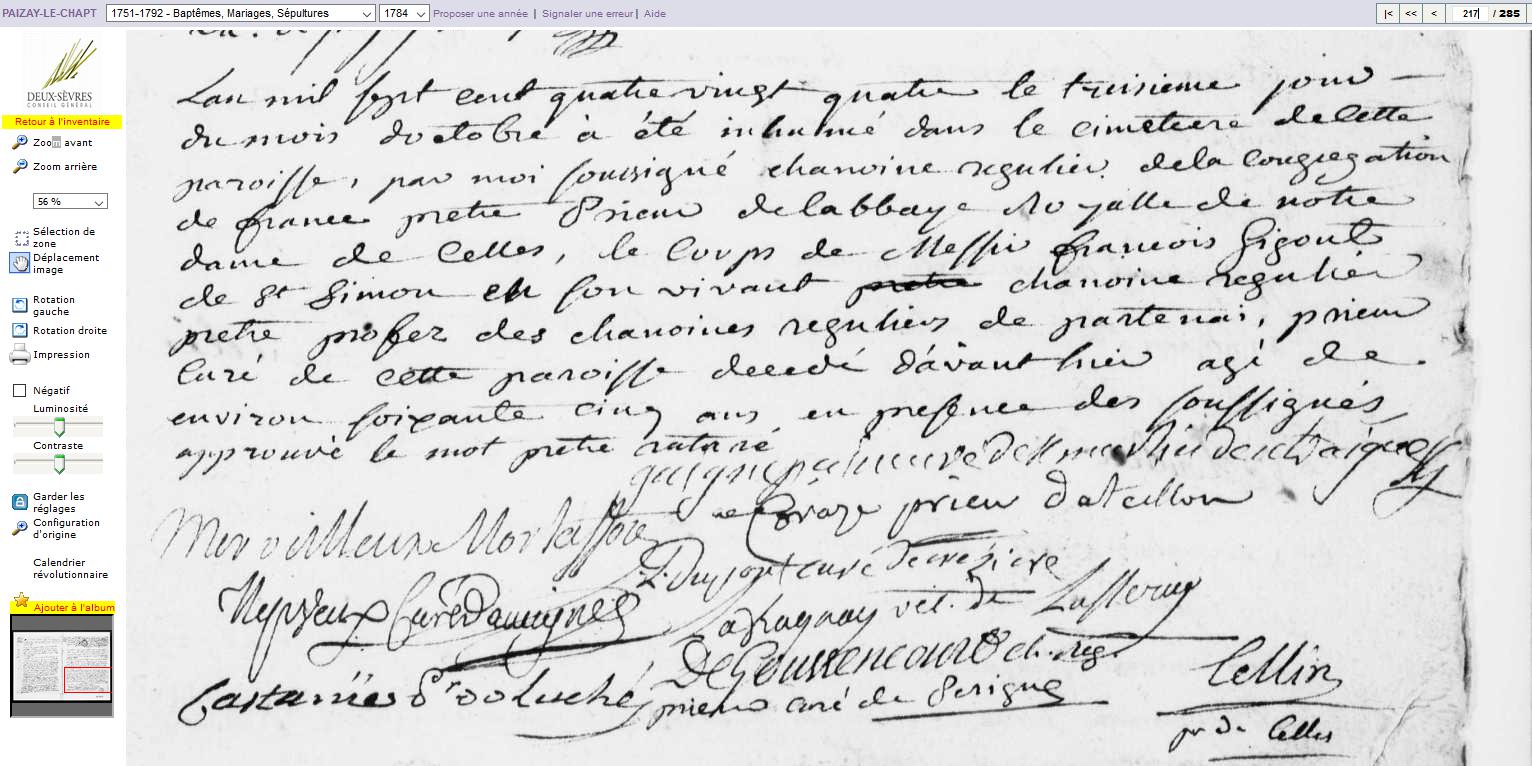 PAIZAY-LE-CHAPT 1751-1792 - Baptêmes, Mariages, Sépultures 1784 Proposer une année | Signaler une erreur | Aide |< << < 217 / 285
DEUX-SÈVRES
CONSEIL GÉNÉRAL
Retour à l'inventaire
Zoom avant
Zoom arrière
56 %
Sélection de
zone
Déplacement
image
Rotation
gauche
Rotation droite
Impression
Négatif
Luminosité
Contraste
Garder les
réglages
Configuration
d'origine
Calendrier
révolutionnaire
Ajouter à l'album
Lan mil sept cent quatre vingt quatre le troisieme jour
du mois doctobre à été inhumé dans le cimetiere de cette
paroisse, par moi soussigné chanoine regulier de la congregation
de france pretre Prieur de labbaye Royalle de notre
dame de Celles, le corps de Messir françois Gigoul
de St Simon en son vivant pretre chanoine regulier
pretre profez des chanoines reguliers de partenai, prieur
Curé de cette paroisse decedé d'avant hier agé de
environ soixante cinq ans en presence des soussignés
approuvé le mot pretre raturé
curé de St martin
prieur
Mervilleux Mortaffon
Dupont curé
Nepveux Curé
vic. de
De Goussencourt ch. reg.
prieur curé de Perigné
Castanié Pr de Luché
Cellin
pr de Celles